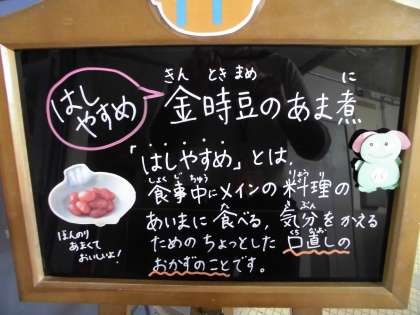 はし
やすめ
きん ときまめ に
金時豆のあま煮
「はしやすめ」とは、
しょくじちゅう りょうり
食事中にメインの料理の
た きぶん
あいまに食べる、気分をかえる
くちなお
ためのちょっとした口直しの
おかずのことです。
ほんのり
あまくて
おいしいよ!